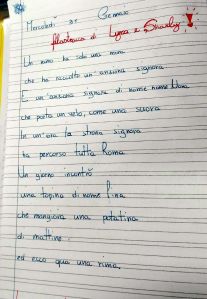 Mercoledì 25 Gennaio
filastrocca di Lyna e Sharly!
Un nano ha solo una mano
che ha raccolto un'anziana signora.
È un'anziana signora di nome nome
che porta un velo, come una suora
In un'ora la strana signora
ha percorso tutta Roma
Un giorno incontrò
una topina di nome Pina
che mangiava una patatina
di mattina
ed ecco qua una rima.